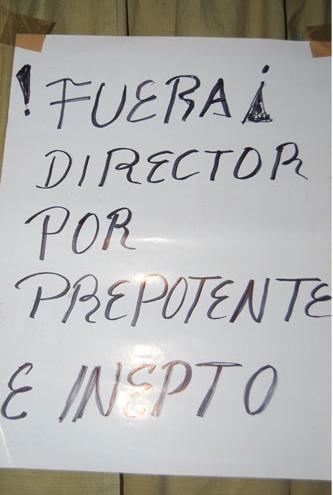 ! FUERA ¡
DIRECTOR
POR
PREPOTENTE
E INEPTO